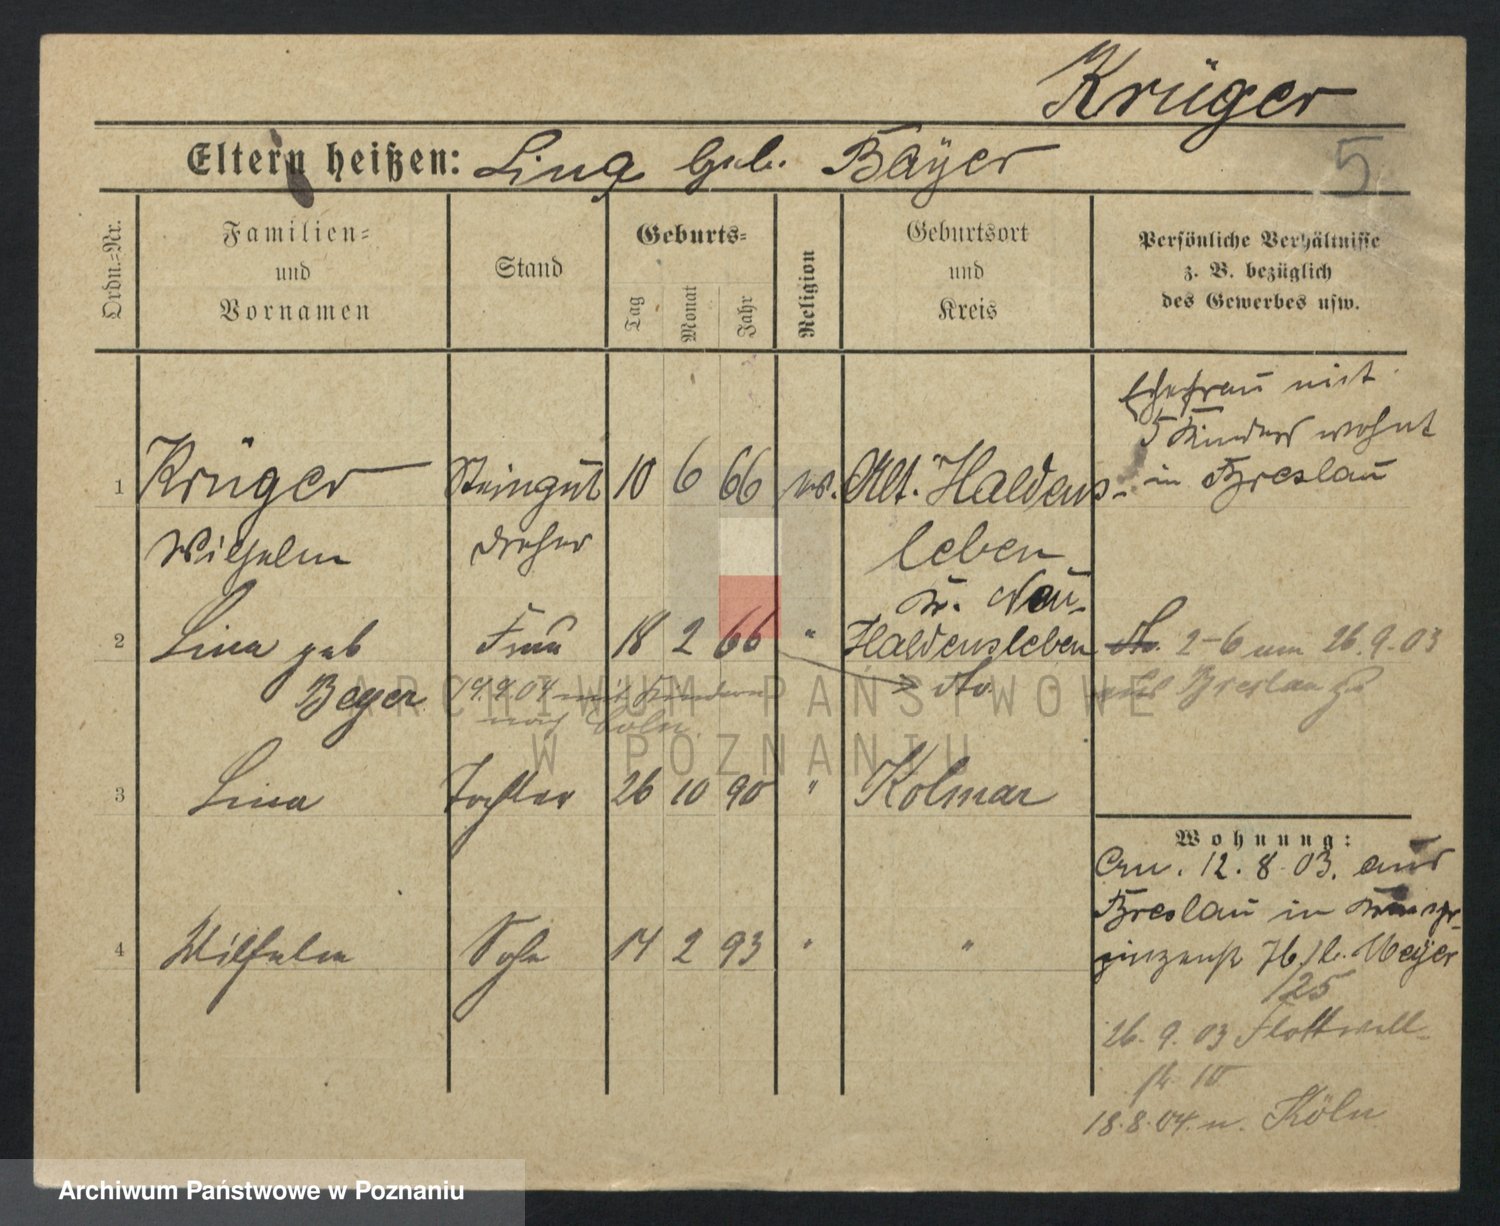 Krüger
Eltern heißen: Lina geb. Bayer
5
Ordn.-Nr.
Familien-
und
Vornamen
Stand
Geburts-
Tag
Monat
Jahr
Religion
Geburtsort
und
Kreis
Persönliche Verhältnisse
z. B. bezüglich
des Gewerbes usw.
Ehefrau mit
5 Kinder wohnt
in Breslau
1 Krüger Steingut 10 6 66 ev. Alt. Haldens-
Wilhelm dreher leben
Kr. Neu-
2 Lina geb Frau 18 2 66 " Haldensleben 2-6 am 26.9.03
Beyer 19.9.04 mit Kindern do. aus Breslau zu
nach Cöln.
3 Lina Tochter 26 10 90 " Kolmar
4 Wilhelm Sohn 14 2 93 " "
Wohnung:
12.8.03. aus
Breslau in
76 b. Meyer
125
26.9.03 Flottwell-
str 10
18.8.04. n. Köln
ARCHIWUM PAŃSTWOWE
W POZNANIU
Archiwum Państwowe w Poznaniu